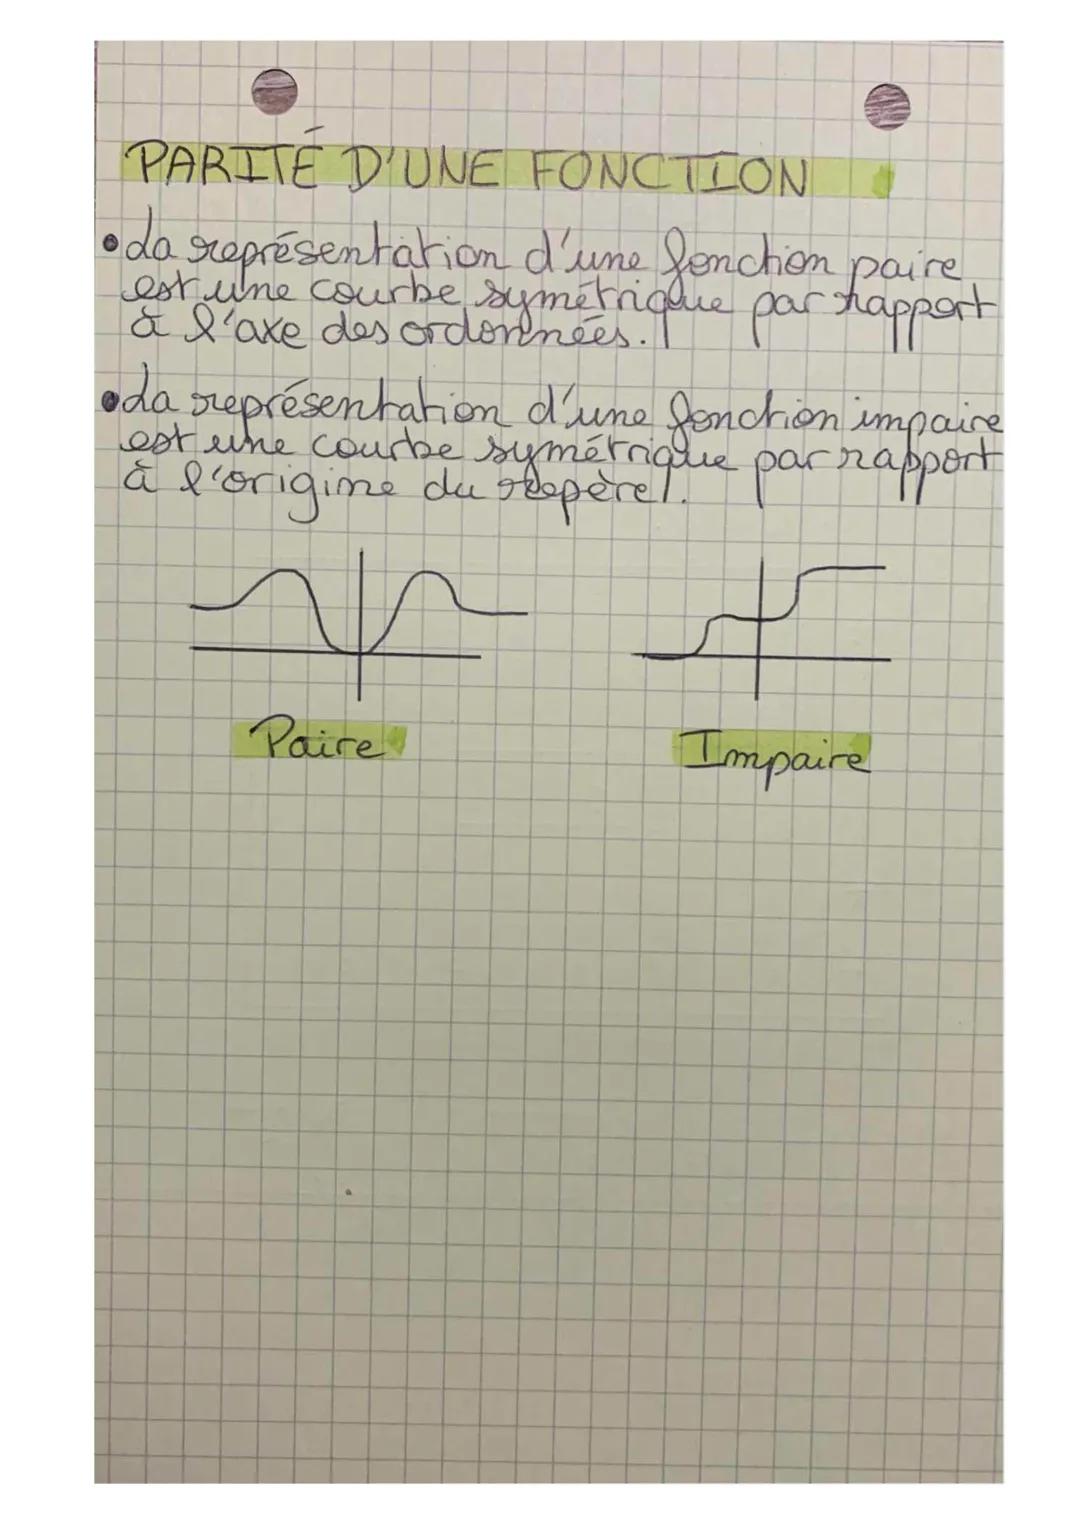 PARITÉ D'UNE FONCTION
• La représentation d'une fonction paire
est une courbe symétrique par rapport
à l'axe des ordonnées.
• La représentation d'une fonction impaire
est une courbe symétrique par rapport
à l'origine du repère.
Paire
Impaire